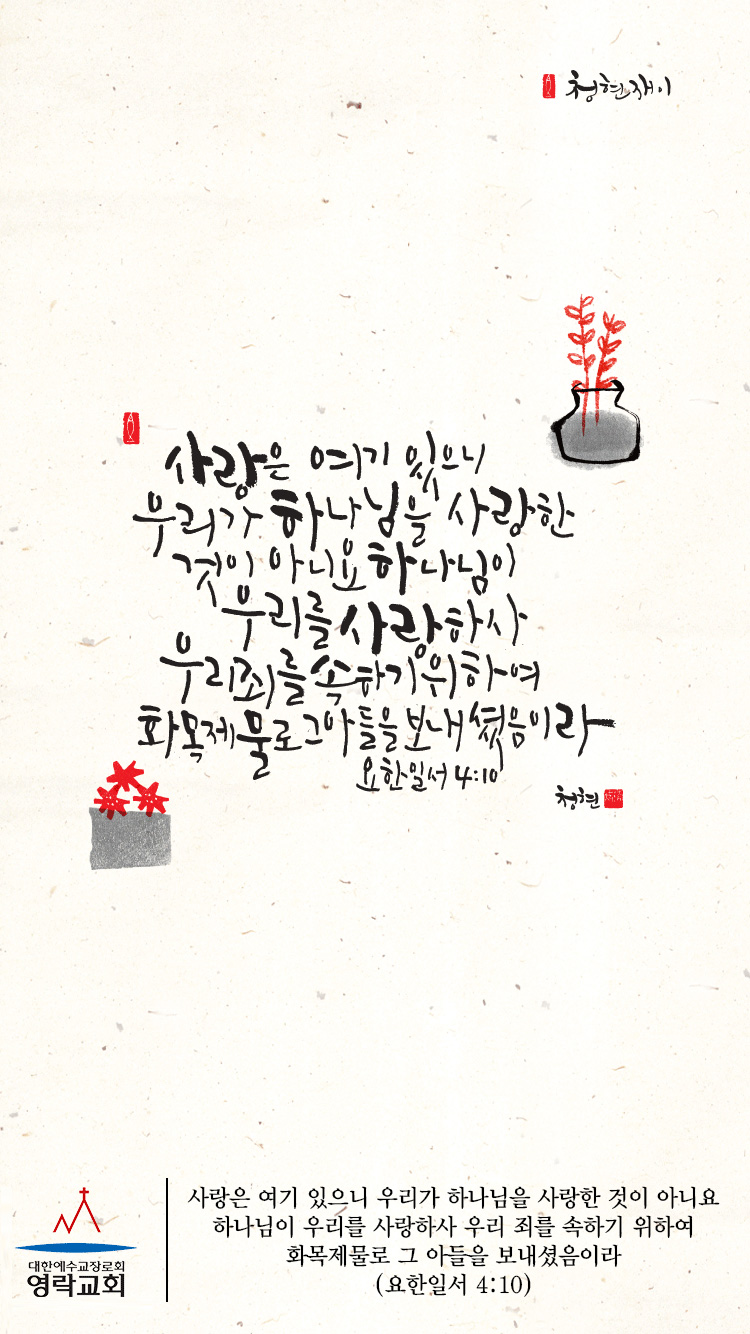 청현재이
사랑은 여기 있으니
우리가 하나님을 사랑한
것이 아니요 하나님이
우리를 사랑하사
우리 죄를 속하기 위하여
화목제물로 그 아들을 보내셨음이라
요한일서 4:10
청현
사랑은 여기 있으니 우리가 하나님을 사랑한 것이 아니요
하나님이 우리를 사랑하사 우리 죄를 속하기 위하여
화목제물로 그 아들을 보내셨음이라
(요한일서 4:10)
대한예수교장로회
영락교회